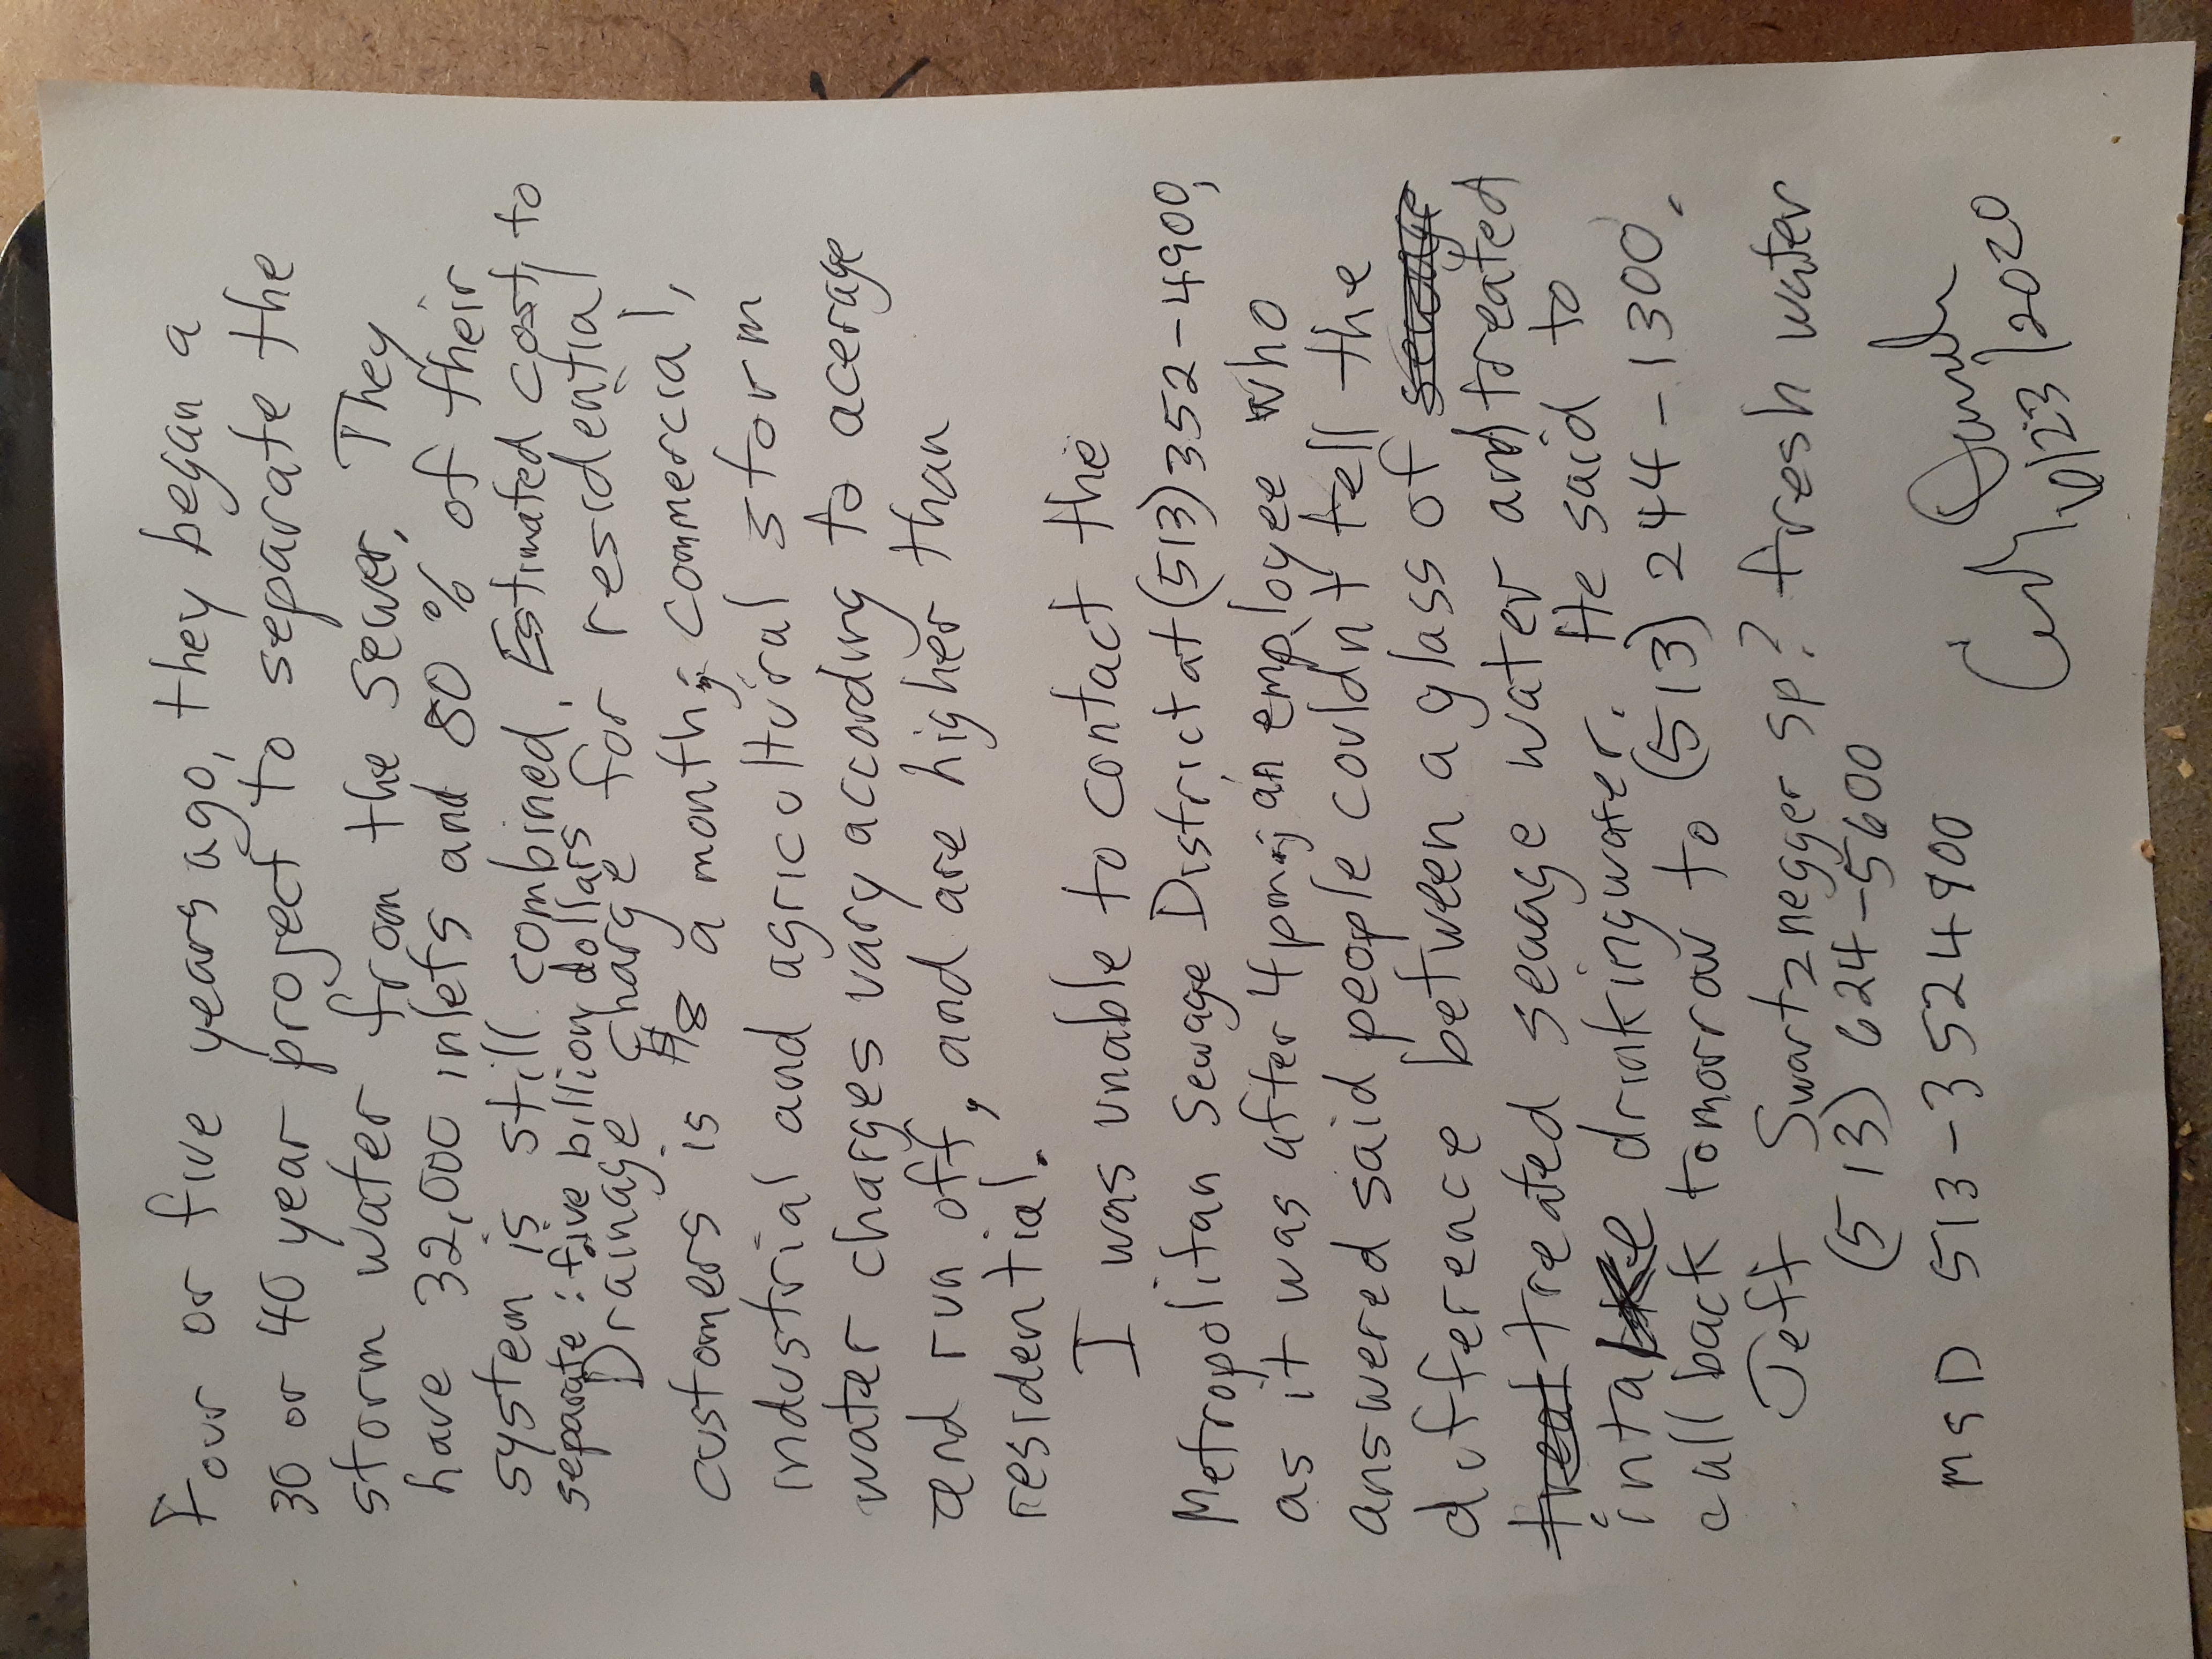 Four or five years ago, they began a
30 or 40 year project to separate the
storm water from the sewer. They
have 32,000 inlets and 80% of their
system is still combined. Estimated cost to
separate: five billion dollars
Drainage Charge for residential
customers is $8 a month; commercial,
industrial and agricultural storm
water charges vary according to acerage
and run off, and are higher than
residential.
I was unable to contact the
Metropolitan Sewage District at (513) 352-4900,
as it was after 4pm; an employee who
answered said people couldn't tell the
difference between a glass of
treated seuage water and treated
intake drinking water. He said to
call back tomorrow to (513) 244-1300.
Jeff Swartznegger sp? fresh water
(513) 624-5600
MSD 513-3524900
10/23/2020